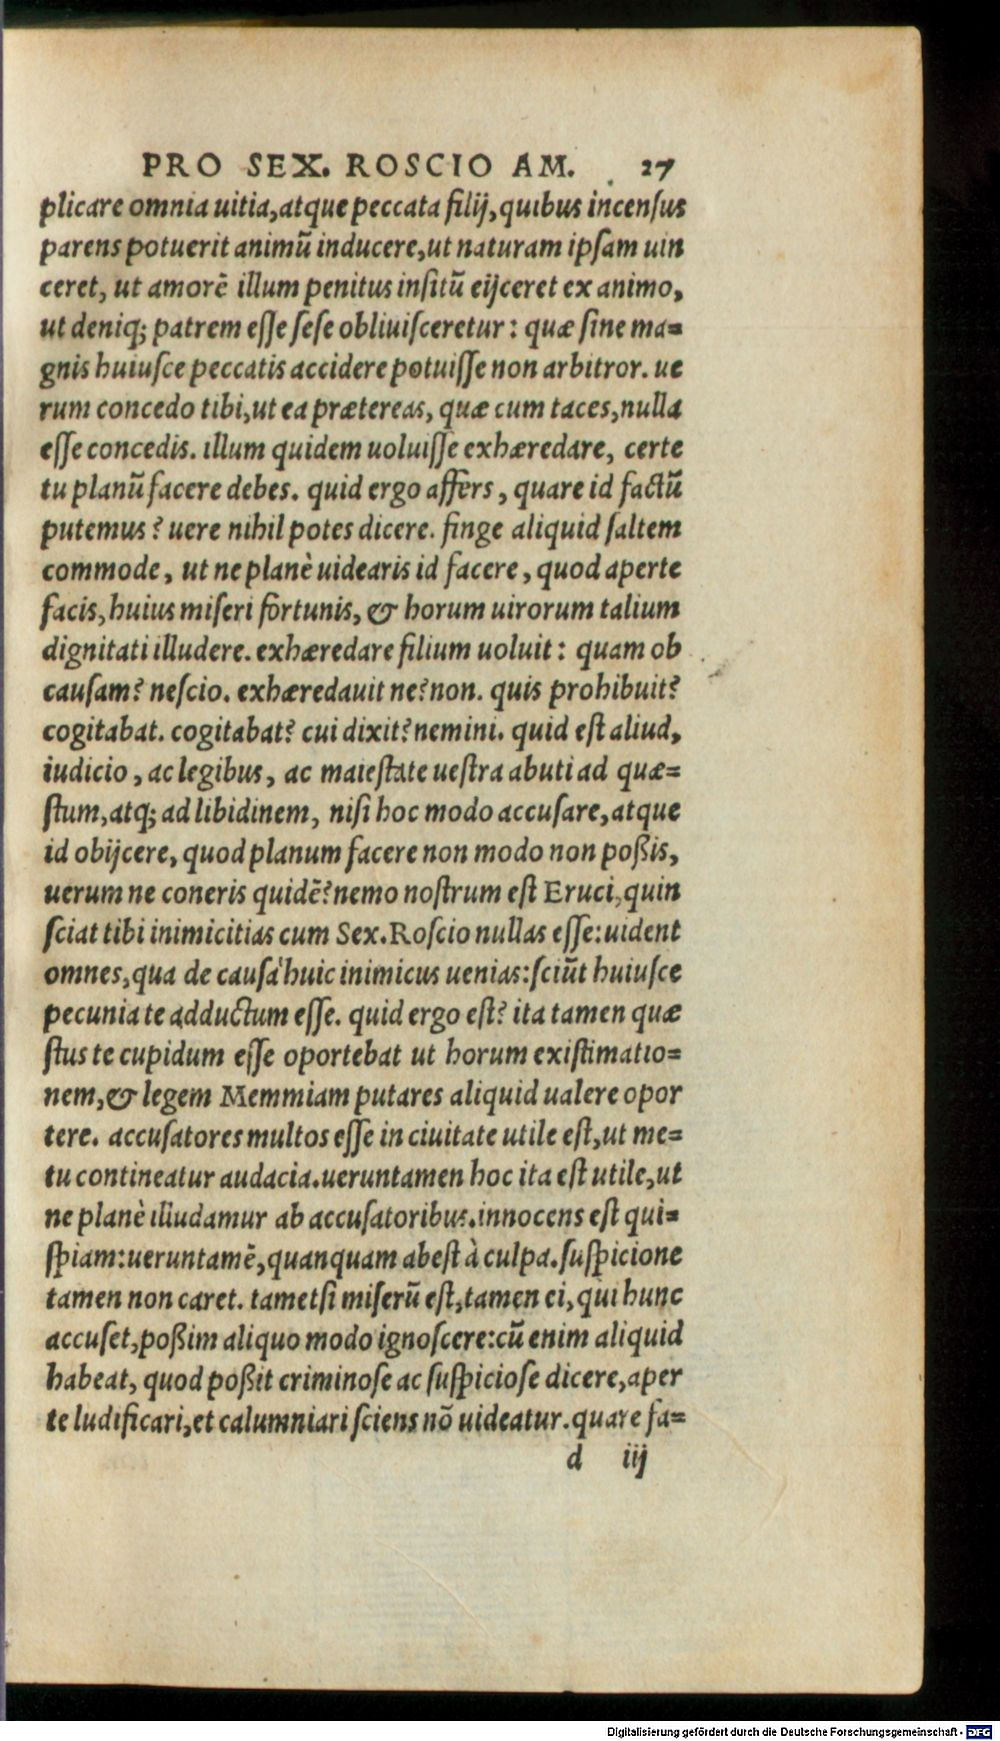 PRO SEX. ROSCIO AM. 27
plicare omnia uitia, atque peccata filij, quibus incensus
parens potuerit animū inducere, ut naturam ipsam uin
ceret, ut amorē illum penitus insitū eijceret ex animo,
ut deniq; patrem esse sese obliuisceretur: quæ sine ma=
gnis huiusce peccatis accidere potuisse non arbitror. ue
rum concedo tibi, ut ea prætereas, quæ cum taces, nulla
esse concedis. illum quidem uoluisse exhæredare, certe
tu planū facere debes. quid ergo affers, quare id factū
putemus? uere nihil potes dicere. finge aliquid saltem
commode, ut ne planè uidearis id facere, quod aperte
facis, huius miseri fortunis, & horum uirorum talium
dignitati illudere. exhæredare filium uoluit: quam ob
causam? nescio. exhæredauit ne? non. quis prohibuit?
cogitabat. cogitabat? cui dixit? nemini. quid est aliud,
iudicio, ac legibus, ac maiestate uestra abuti ad quæ=
stum, atq; ad libidinem, nisi hoc modo accusare, atque
id obijcere, quod planum facere non modo non poßis,
uerum ne coneris quidē? nemo nostrum est Eruci, quin
sciat tibi inimicitias cum Sex. Roscio nullas esse: uident
omnes, qua de causa' huic inimicus uenias: sciūt huiusce
pecunia te adductum esse. quid ergo est? ita tamen quæ
stus te cupidum esse oportebat ut horum existimatio=
nem, & legem Memmiam putares aliquid ualere opor
tere. accusatores multos esse in ciuitate utile est, ut me=
tu contineatur audacia. ueruntamen hoc ita est utile, ut
ne planè illudamur ab accusatoribus. innocens est qui=
spiam: ueruntamē, quanquam abest à culpa. suspicione
tamen non caret. tametsi miserū est, tamen ei, qui hunc
accuset, poßim aliquo modo ignoscere: cū enim aliquid
habeat, quod poßit criminose ac suspiciose dicere, aper
te ludificari, et calumniari sciens nō uideatur. quare fa=
d iij
Digitalisierung gefördert durch die Deutsche Forschungsgemeinschaft - DFG